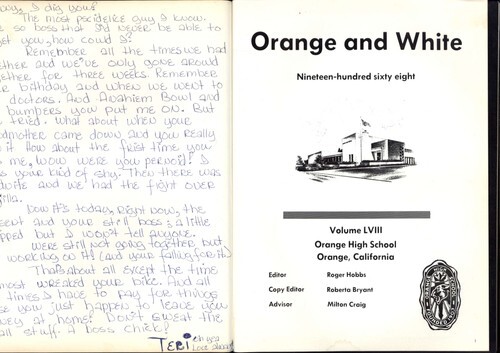 guy, I dig you!
The most pscidelice guy I know.
so boss that I'd never be able to
get you, how could I?
Remember all the times we had
ether and we've only gone around
ether for three weeks. Remember
r bithday and when we went to
doctors. And Anahiem Bowl and
bumpers you put me on. But
tried. What about when your
dmother came down and you really
it How about the frist time you
me, wow were you peroid! I
s your kind of shy. Then there was
and we had the fight over
zilla.
Now it's today, right now, the
sent and your still boss; a little
pped but I won't tell anyone.
were still not going together but
working on it! (and your falling for it)
That's about all except the time
most wreaked your bike. And all
times I have to pay for things
se you just happen to leave you
ney at home! Don't sweat the
all stuff. a boss chick!
TERI
Love always
Orange and White
Nineteen-hundred sixty eight
Volume LVIII
Orange High School
Orange, California
Editor Roger Hobbs
Copy Editor Roberta Bryant
Advisor Milton Craig